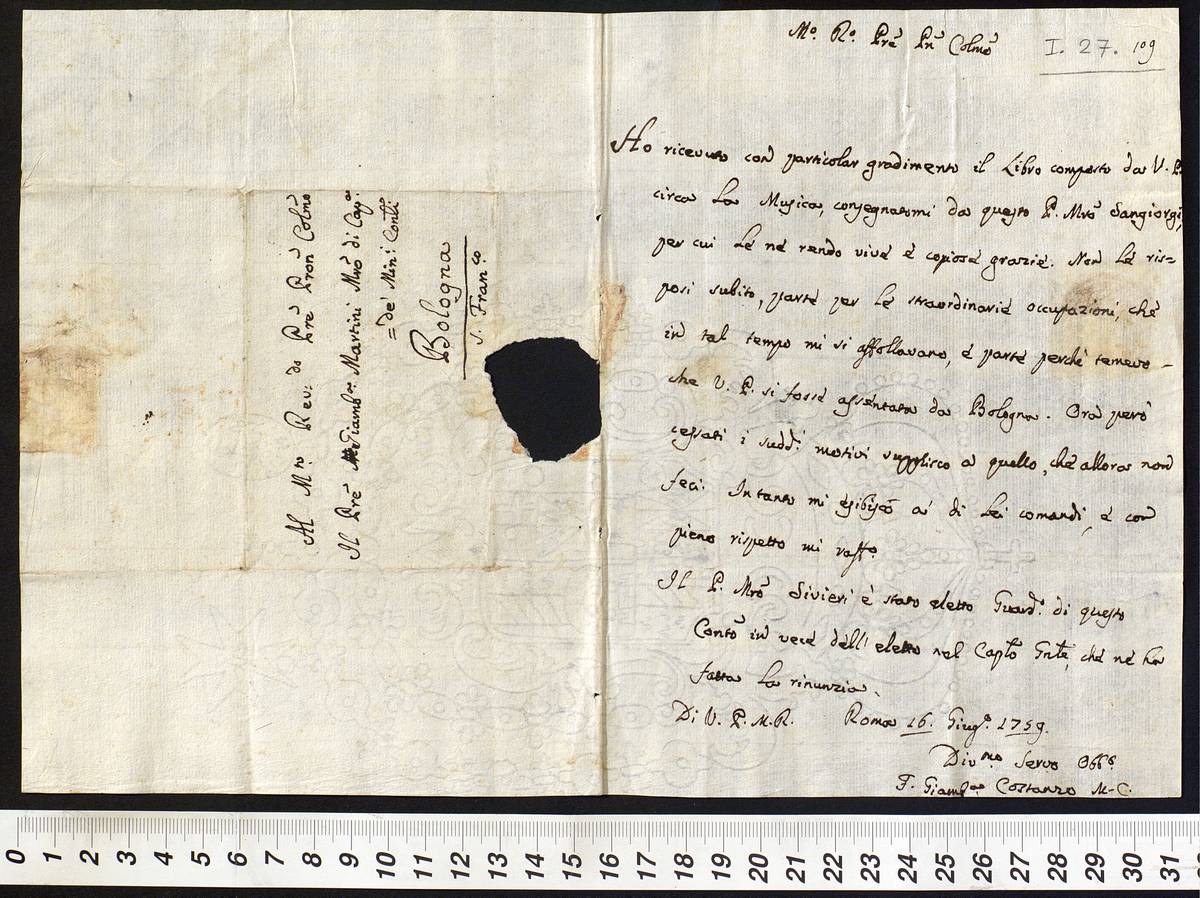 Al Mto Revdo Pre Pron Colmo
Il Pre Giambta Martini Mro di Capa
= de Mini Conti
Bologna
S. Franco
Mo. Ro. Pre Pn Colmo
I. 27. 109
Ho ricevuto con particolar gradimento il Libro composto da V. P.
circa la Musica, consegnatomi da questo P. Mro Sangiorgi,
per cui Le ne rendo vive e copiose grazie. Non Le ris=
posi subito, parte per le straordinarie occupazioni, che
in tal tempo mi si affollavano, e parte perche temevo
che V. P. si fosse assentata da Bologna. Ora però
cessati i sudd. motivi supplisco a quello, che allora non
feci. Intanto mi esibisco a' di Lei comandi, e con
pieno rispetto mi raffo.
Il P. Mro Sivieri è stato eletto Guard. di questo
Conto in vece dell'eletto nel Caplo Gnle, che ne ha
fatta la rinunzia.
Di V. P. M. R. Roma 16. Giugo 1759.
Divmo Servo Obbo.
F. Giambta Costanzo M. C.
0 1 2 3 4 5 6 7 8 9 10 11 12 13 14 15 16 17 18 19 20 21 22 23 24 25 26 27 28 29 30 31